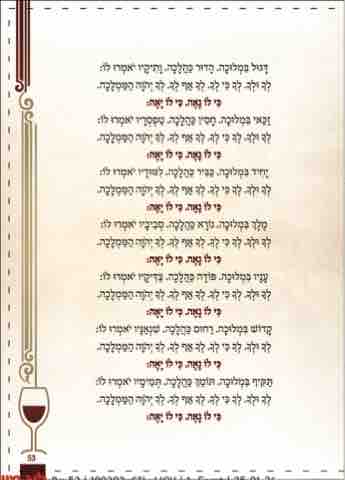 דָּגוּל בִּמְלוּכָה, הָדוּר כַּהֲלָכָה, וָתִיקָיו יֹאמְרוּ לוֹ:
לְךָ וּלְךָ, לְךָ כִּי לְךָ, לְךָ אַף לְךָ, לְךָ יְהֹוָה הַמַּמְלָכָה,
כִּי לוֹ נָאֶה, כִּי לוֹ יָאֶה:
זַכַּאי בִּמְלוּכָה, חָסִין כַּהֲלָכָה, טַפְסְרָיו יֹאמְרוּ לוֹ:
לְךָ וּלְךָ, לְךָ כִּי לְךָ, לְךָ אַף לְךָ, לְךָ יְהֹוָה הַמַּמְלָכָה,
כִּי לוֹ נָאֶה, כִּי לוֹ יָאֶה:
יָחִיד בִּמְלוּכָה, כַּבִּיר כַּהֲלָכָה, לִמּוּדָיו יֹאמְרוּ לוֹ:
לְךָ וּלְךָ, לְךָ כִּי לְךָ, לְךָ אַף לְךָ, לְךָ יְהֹוָה הַמַּמְלָכָה,
כִּי לוֹ נָאֶה, כִּי לוֹ יָאֶה:
מֶלֶךְ בִּמְלוּכָה, נוֹרָא כַּהֲלָכָה, סְבִיבָיו יֹאמְרוּ לוֹ:
לְךָ וּלְךָ, לְךָ כִּי לְךָ, לְךָ אַף לְךָ, לְךָ יְהֹוָה הַמַּמְלָכָה,
כִּי לוֹ נָאֶה, כִּי לוֹ יָאֶה:
עָנָיו בִּמְלוּכָה, פּוֹדֶה כַּהֲלָכָה, צַדִּיקָיו יֹאמְרוּ לוֹ:
לְךָ וּלְךָ, לְךָ כִּי לְךָ, לְךָ אַף לְךָ, לְךָ יְהֹוָה הַמַּמְלָכָה,
כִּי לוֹ נָאֶה, כִּי לוֹ יָאֶה:
קָדוֹשׁ בִּמְלוּכָה, רַחוּם כַּהֲלָכָה, שִׁנְאַנָּיו יֹאמְרוּ לוֹ:
לְךָ וּלְךָ, לְךָ כִּי לְךָ, לְךָ אַף לְךָ, לְךָ יְהֹוָה הַמַּמְלָכָה,
כִּי לוֹ נָאֶה, כִּי לוֹ יָאֶה:
תַּקִּיף בִּמְלוּכָה, תּוֹמֵךְ כַּהֲלָכָה, תְּמִימָיו יֹאמְרוּ לוֹ:
לְךָ וּלְךָ, לְךָ כִּי לְךָ, לְךָ אַף לְךָ, לְךָ יְהֹוָה הַמַּמְלָכָה,
כִּי לוֹ נָאֶה, כִּי לוֹ יָאֶה:
53